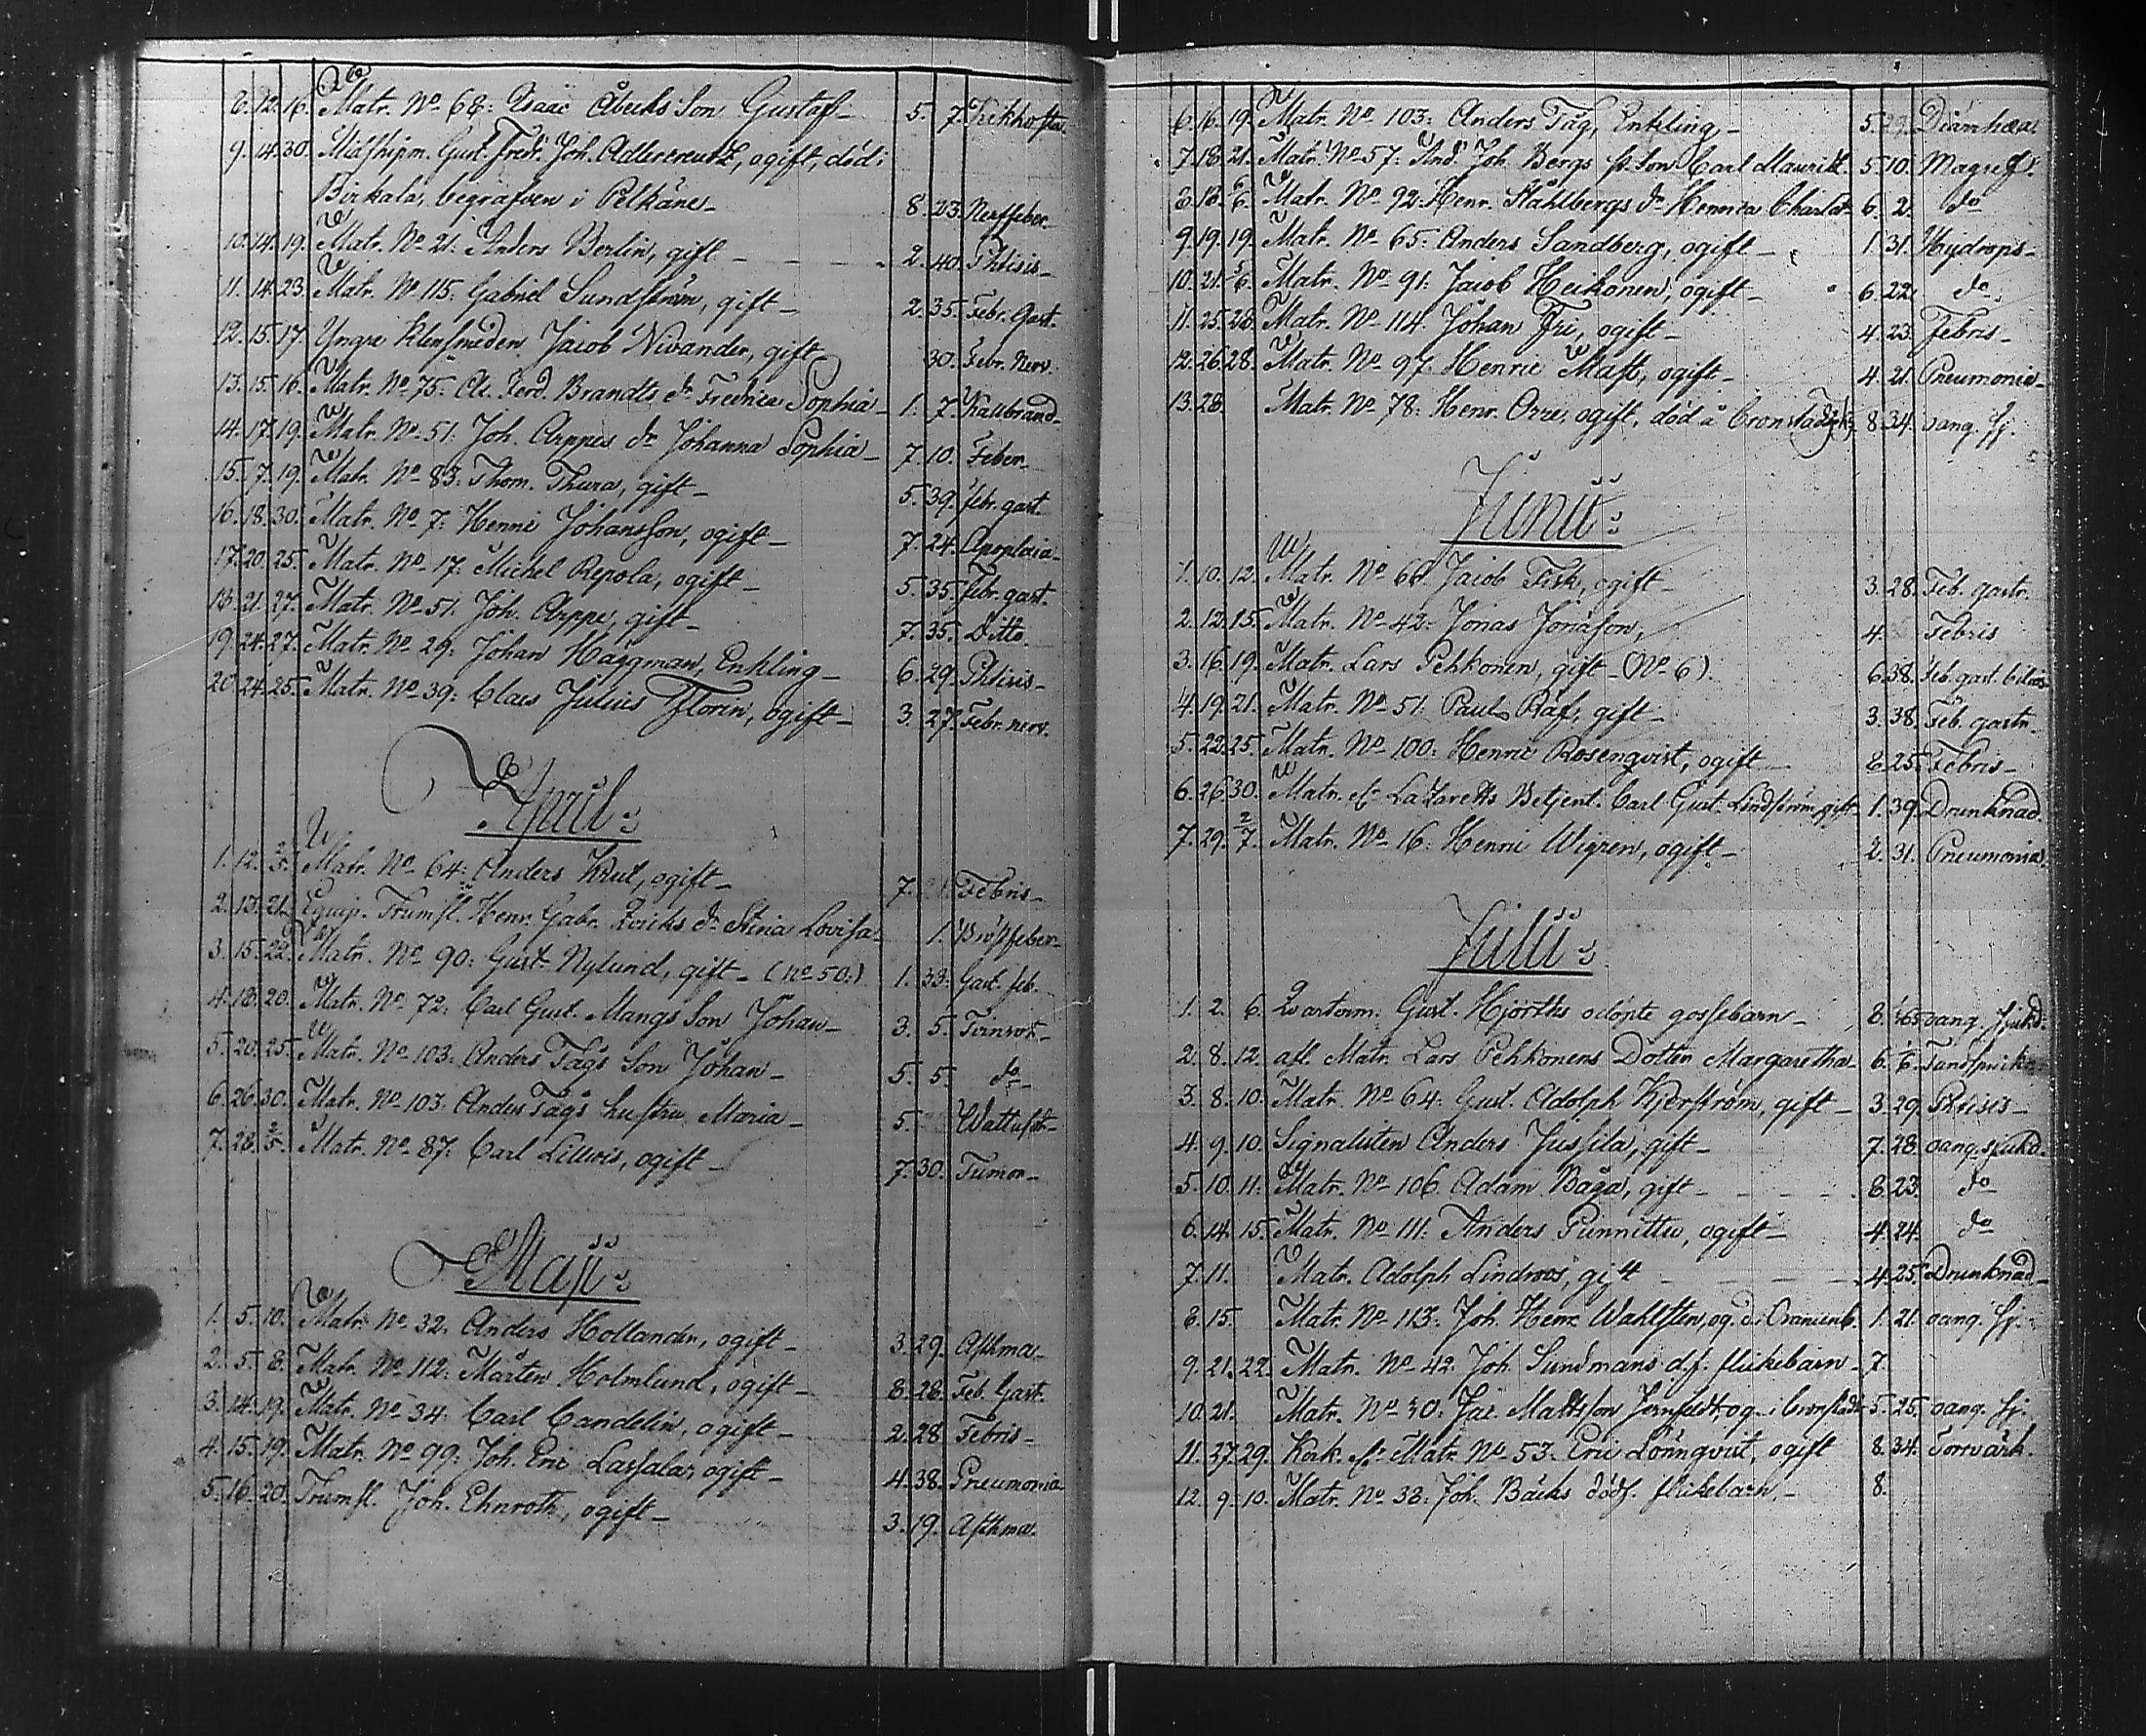 8. 12. 16. Matr. No 68: Isaac Åbecks Son Gustaf 5. 7. Kikhosta
9. 14. 30. Midshipm. Gust. Fredr. Joh. Adlercreutz, ogift, död i
Birkala, begrafven i Pelkäne 8. 23. Nerffeber
10. 14. 19. Matr. No 21. Anders Berlin, gift 2. 40. Phtisis
11. 14. 23. Matr. No 115: Gabriel Sundström, gift 2. 35. Febr. Gast.
12. 15. 17. Yngre Klensmeden Jacob Nivander, gift 30. Febr. Nerv.
13. 15. 16. Matr. No 75: Ferd. Brandts dr Fredrica Sophia 1. 7. Kallbrand
14. 17. 19. Matr. No 51: Joh. Arppes dr Johanna Sophia 7. 10. Feber
15. 17. 19. Matr. No 83: Thom. Thura, gift 5. 39. febr. gast.
16. 18. 30. Matr. No 7: Henric Johansson, ogift 7. 24. Apoplexia
17. 20. 25. Matr. No 17: Michel Repola, ogift 5. 35. febr. gast.
18. 21. 27. Matr. No 51. Joh. Arppe, gift 7. 35. Ditto
19. 24. 27. Matr. No 29: Johan Häggman, Enkling 6. 29. Phtisis
20. 24. 25. Matr. No 39: Claes Julius Florin, ogift 3. 27. Febr. nerv.
April:
1. 12. 2/5. Matr. No 64: Anders Krut, ogift 7. Febris
2. 13. 21. Equip. Trumsl. Henr. Gabr. Qvicks dr Stina Lovisa 1. Bröstfeber
3. 15. 22. Matr. No 90: Gust. Nylund, gift (No 50:) 1. 33: Gast. feb.
4. 18. 20. Matr. No 72: Carl Gust. Mangs Son Johan 3. 5. Tvinsot
5. 20. 25. Matr. No 103: Anders Tågs Son Johan 5. 5. do
6. 26. 30. Matr. No 103: Anders Tågs hustru Maria 5. Wattusot
7. 28. 2/5. Matr. No 87: Carl Lillvis, ogift 7. 30. Tumor
Maji:
1. 5. 10. Matr. No 32. Anders Hollander, ogift 3. 29. Asthma
2. 5. 8. Matr. No 112: Mårten Holmlund, ogift 8. 28. Feb. Gast.
3. 14. 19. Matr. No 34: Carl Candelin, ogift 2. 28. Febris
4. 15. 19. Matr. No 99: Joh. Eric Lassala, ogift 4. 38. Pneumonia
5. 16. 20. Trumsl. Joh. Ehnroth, ogift 3. 19. Asthma
6. 16. 19. Matr. No 103: Anders Tåg, Enkling, 5.
7. 18. 21. Matr. No 57: And. Joh. Bergs st. Son Carl Mauritz 5. 10. Magref
8. 18. 6/6. Matr. No 92: Henr. Ståhlbergs dr Henrica Charlot 6. 2. do
9. 19. 19. Matr. No 65: Anders Sandberg, ogift 1. 31. Hydrops
10. 21. 5/6. Matr. No 91: Jacob Heikonen, ogift 6. 22. do
11. 25. 28. Matr. No 114: Johan Fri, ogift 4. 23. Febris
12. 26. 28. Matr. No 97. Henric Mast, ogift 4. 21. Pneumonia
13. 28. Matr. No 78: Henr. Orre, ogift, död å 8. 34. oang. sj.
Junii:
1. 10. 12. Matr. No 66. Jacob Fisk, ogift 3. 28. Feb. gastr.
2. 12. 15. Matr. No 42: Jonas Jonason, 4. Febris
3. 16. 19. Matr. Lars Pehkonen, gift (No 6). 6. 38. feb. gast. bilios
4. 19. 21. Matr. No 51. Paul Räf, gift 3. 38. Feb. gastr.
5. 22. 25. Matr. No 100: Henric Rosenqvist, ogift 8. 25. Febris
6. 26. 30. Matr. Lazaretts Betjent. Carl Gust. Lindström, gift 1. 39. Drunknad
7. 29. 2/7. Matr. No 16: Henric Wigren, ogift 2. 31. Pneumonia
Julii:
1. 2. 6. Qvarterm. Gust. Hjorths odöpte gossebarn 8. oang. sjukd.
2. 8. 12. afl. Matr. Lars Pehkonens Dotter Margaretha 6. Tandsprickn.
3. 8. 10. Matr. No 64: Gust. Adolph Kjerström, gift 3. 29. Phtisis
4. 9. 10. Signalisten Anders Jussila, gift 7. 28. oang. sjukd.
5. 10. 11. Matr. No 106. Adam Båga, gift 8. 23. do
6. 14. 15. Matr. No 111: Anders Punnittu, ogift 4. 24. do
7. 11. Matr. Adolph Lindroos, gift 4. 25. Drunknad
8. 15. Matr. No 113: Joh. Henr. Wahlsten, og. d. i Oranienb. 1. 21. oang. sj.
9. 21. 22. Matr. No 42: Joh. Sundmans d.f. flickebarn 7.
10. 21. Matr. No 30: Jac. Mattsson Jernfeldt, og. i Cronstadt 5. 25. oang. sj.
11. 27. 29. Kock. Matr. No 53: Eric Lönnqvist, ogift 8. 34. Torrvärk.
12. 9. 10. Matr. No 38: Joh. Bäcks dödf. flickebarn, 8.